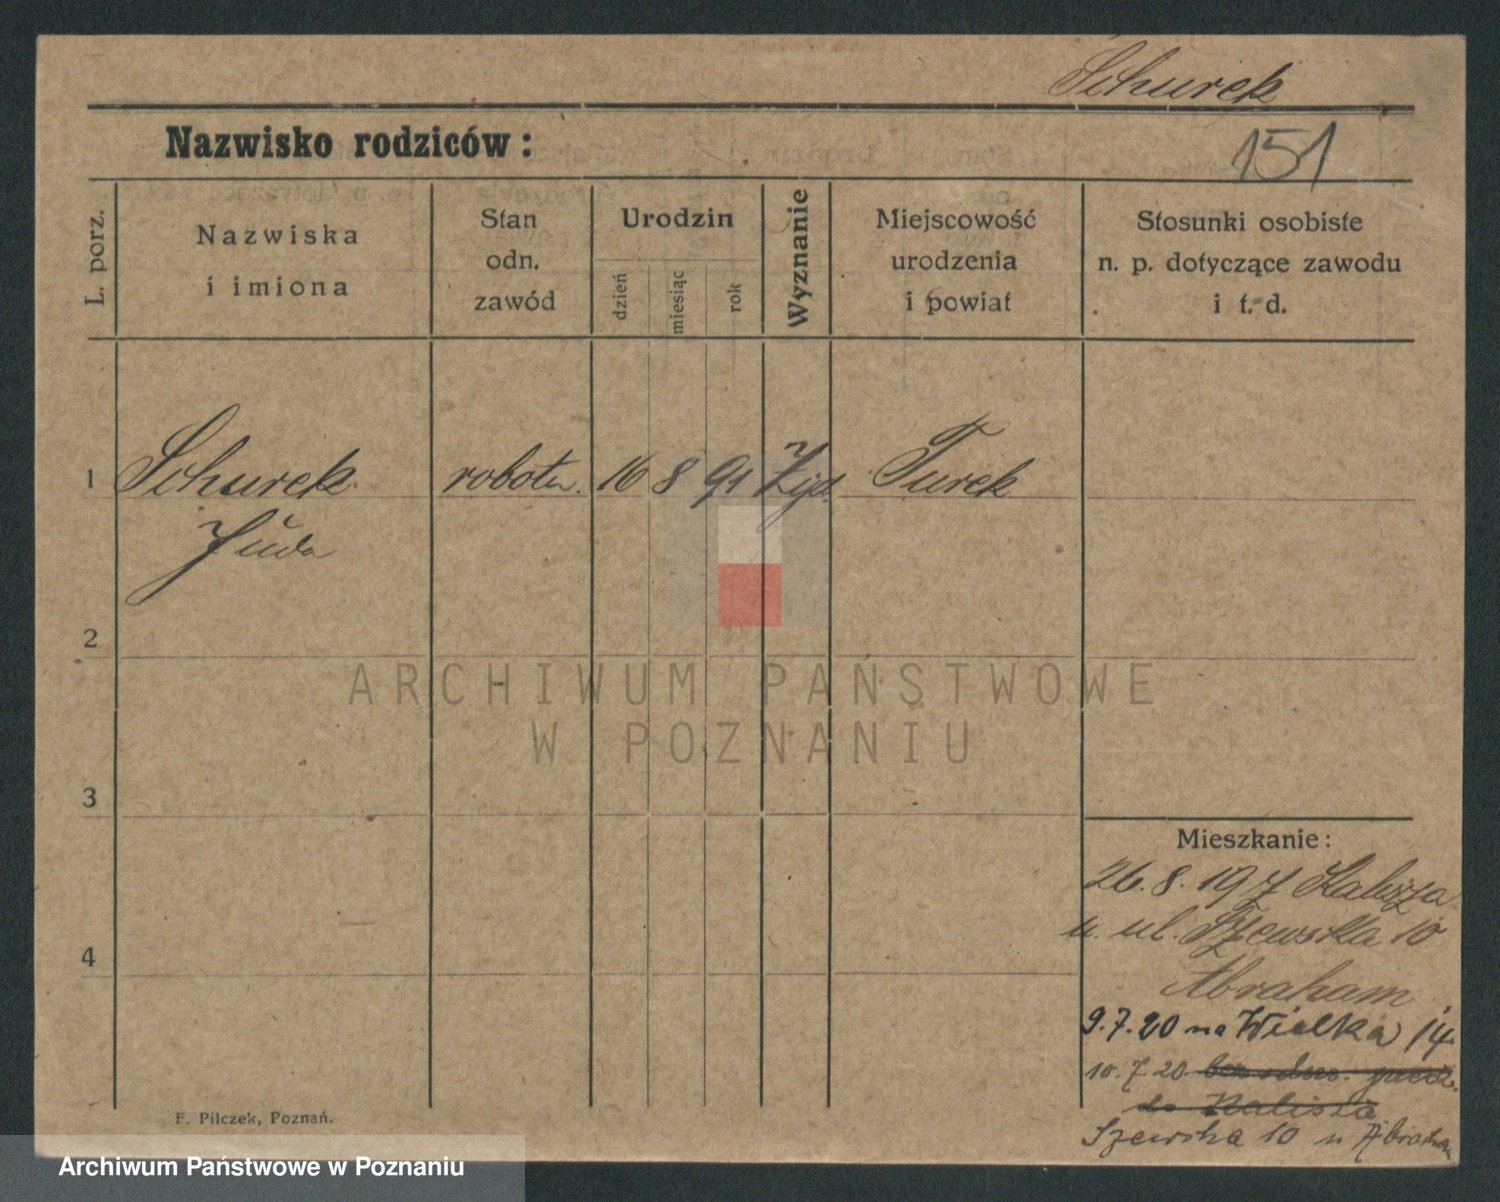 Schurek
Nazwisko rodziców:
151
L. porz.
Nazwiska
i imiona
Stan
odn.
zawód
Urodzin
dzień
miesiąc
rok
Wyznanie
Miejscowość
urodzenia
i powiat
Stosunki osobiste
n. p. dotyczące zawodu
i t. d.
1 Schurek robotn. 16 8 91 Żyd. Turek
Juda
2
3
4
Mieszkanie:
26. 8. 19 z Kalisza
n. ul. Szewska 10
Abraham
9.7.20 na Wielka 14.
10.7.20. bez odm.
do Kalisza
Szewska 10 u Abraham
F. Pilczek, Poznań.
ARCHIWUM PAŃSTWOWE
W POZNANIU
Archiwum Państwowe w Poznaniu